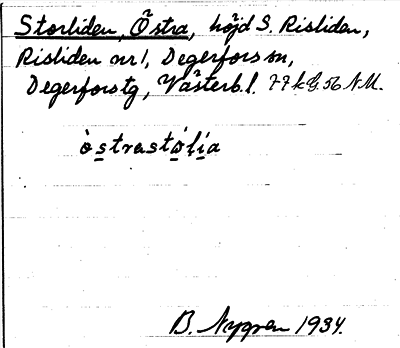 Storliden, Östra, höjd S. Risliden,
Risliden nr 1, Degerfors sn,
Degerfors tg, Västerb.l. 77 k G. 56 N.M.
òstrastó̱li̱a
B. Nygren 1934.